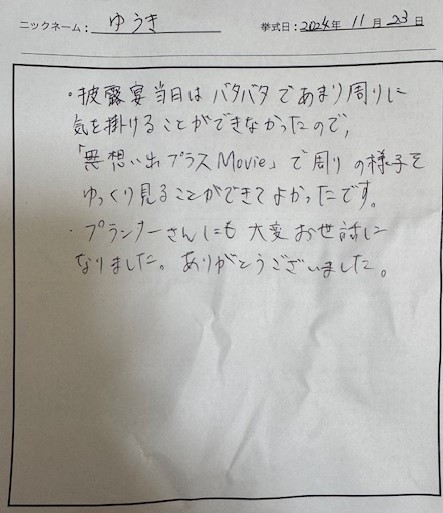 ニックネーム: ゆうき 挙式日: 2024年 11月 23日
・披露宴当日はバタバタであまり周りに
気を掛けることができなかったので、
「想い出プラスMovie」で周りの様子を
ゆっくり見ることができてよかったです。
・プランナーさんにも大変お世話に
なりました。ありがとうございました。